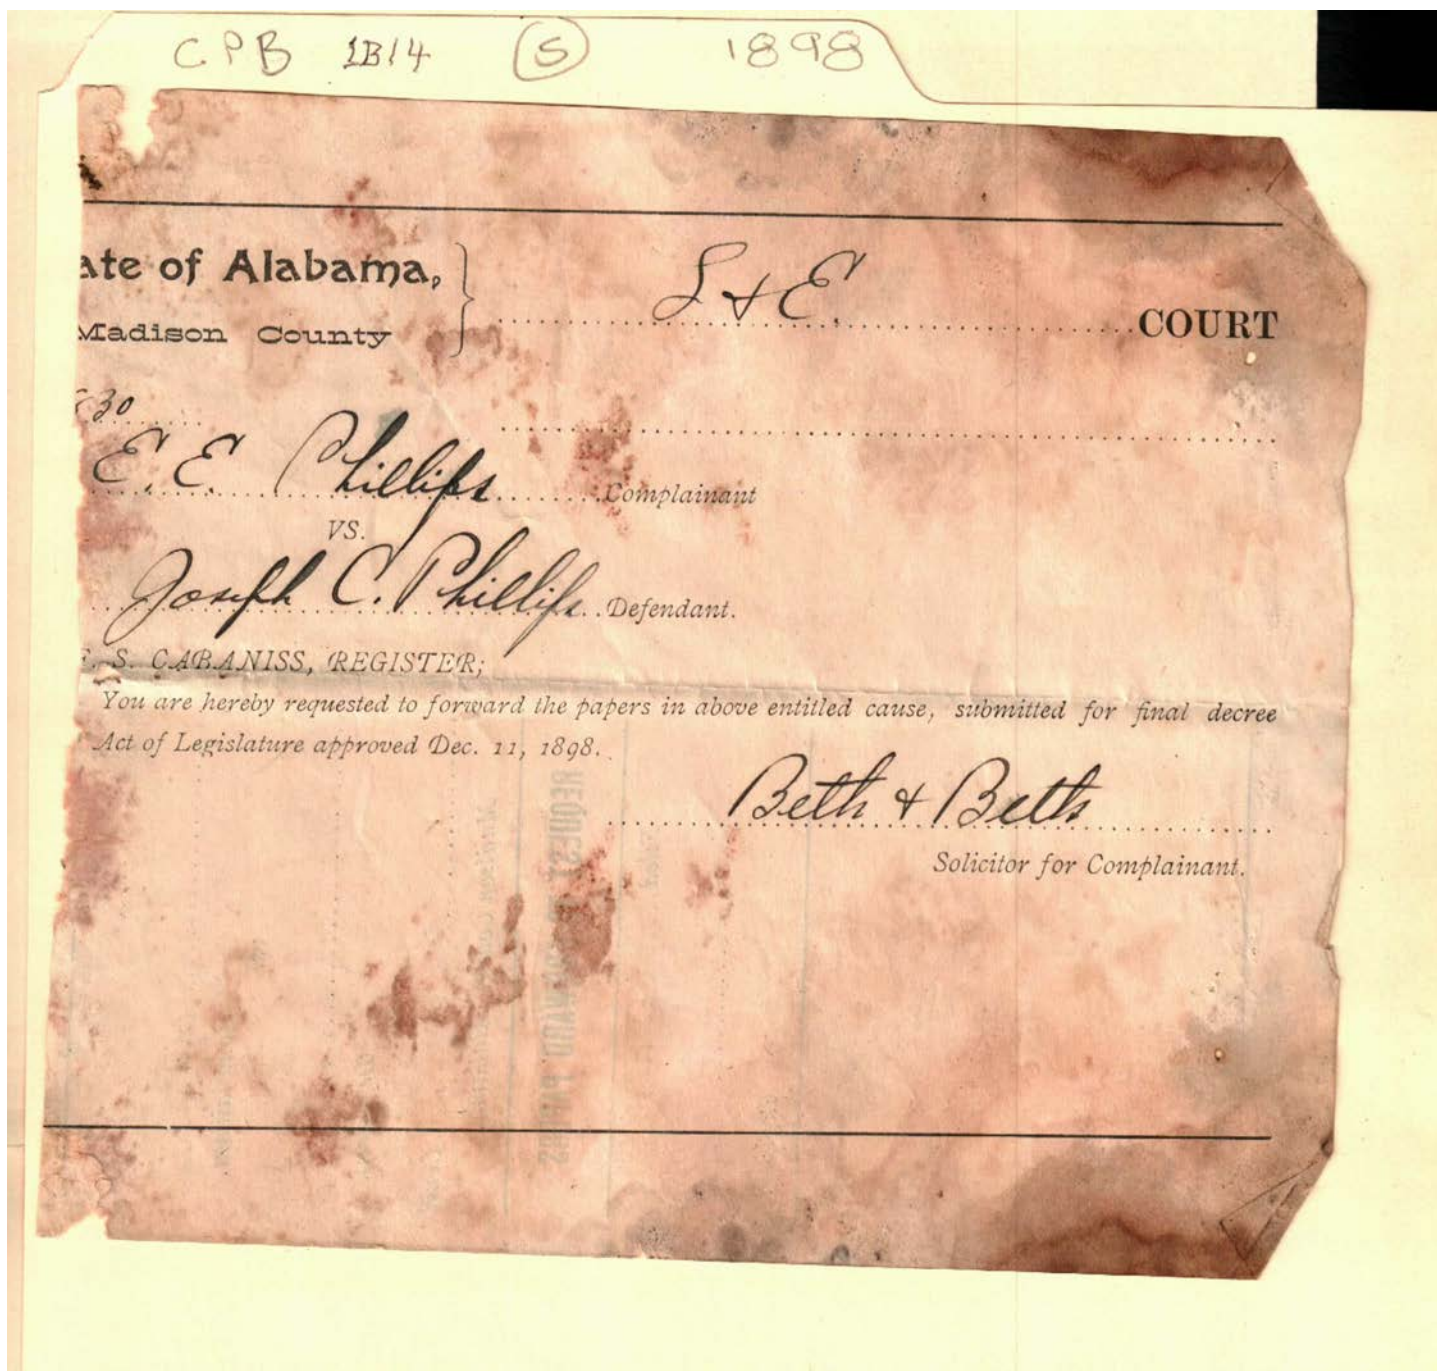 CPB 1B14 (5) 1898
ate of Alabama,
Madison County
L & E. COURT
30
E. E. Phillips Complainant
VS.
Joseph C. Phillips Defendant.
. S. CABANISS, REGISTER;
You are hereby requested to forward the papers in above entitled cause, submitted for final decree
Act of Legislature approved Dec. 11, 1898.
Betts & Betts
Solicitor for Complainant.